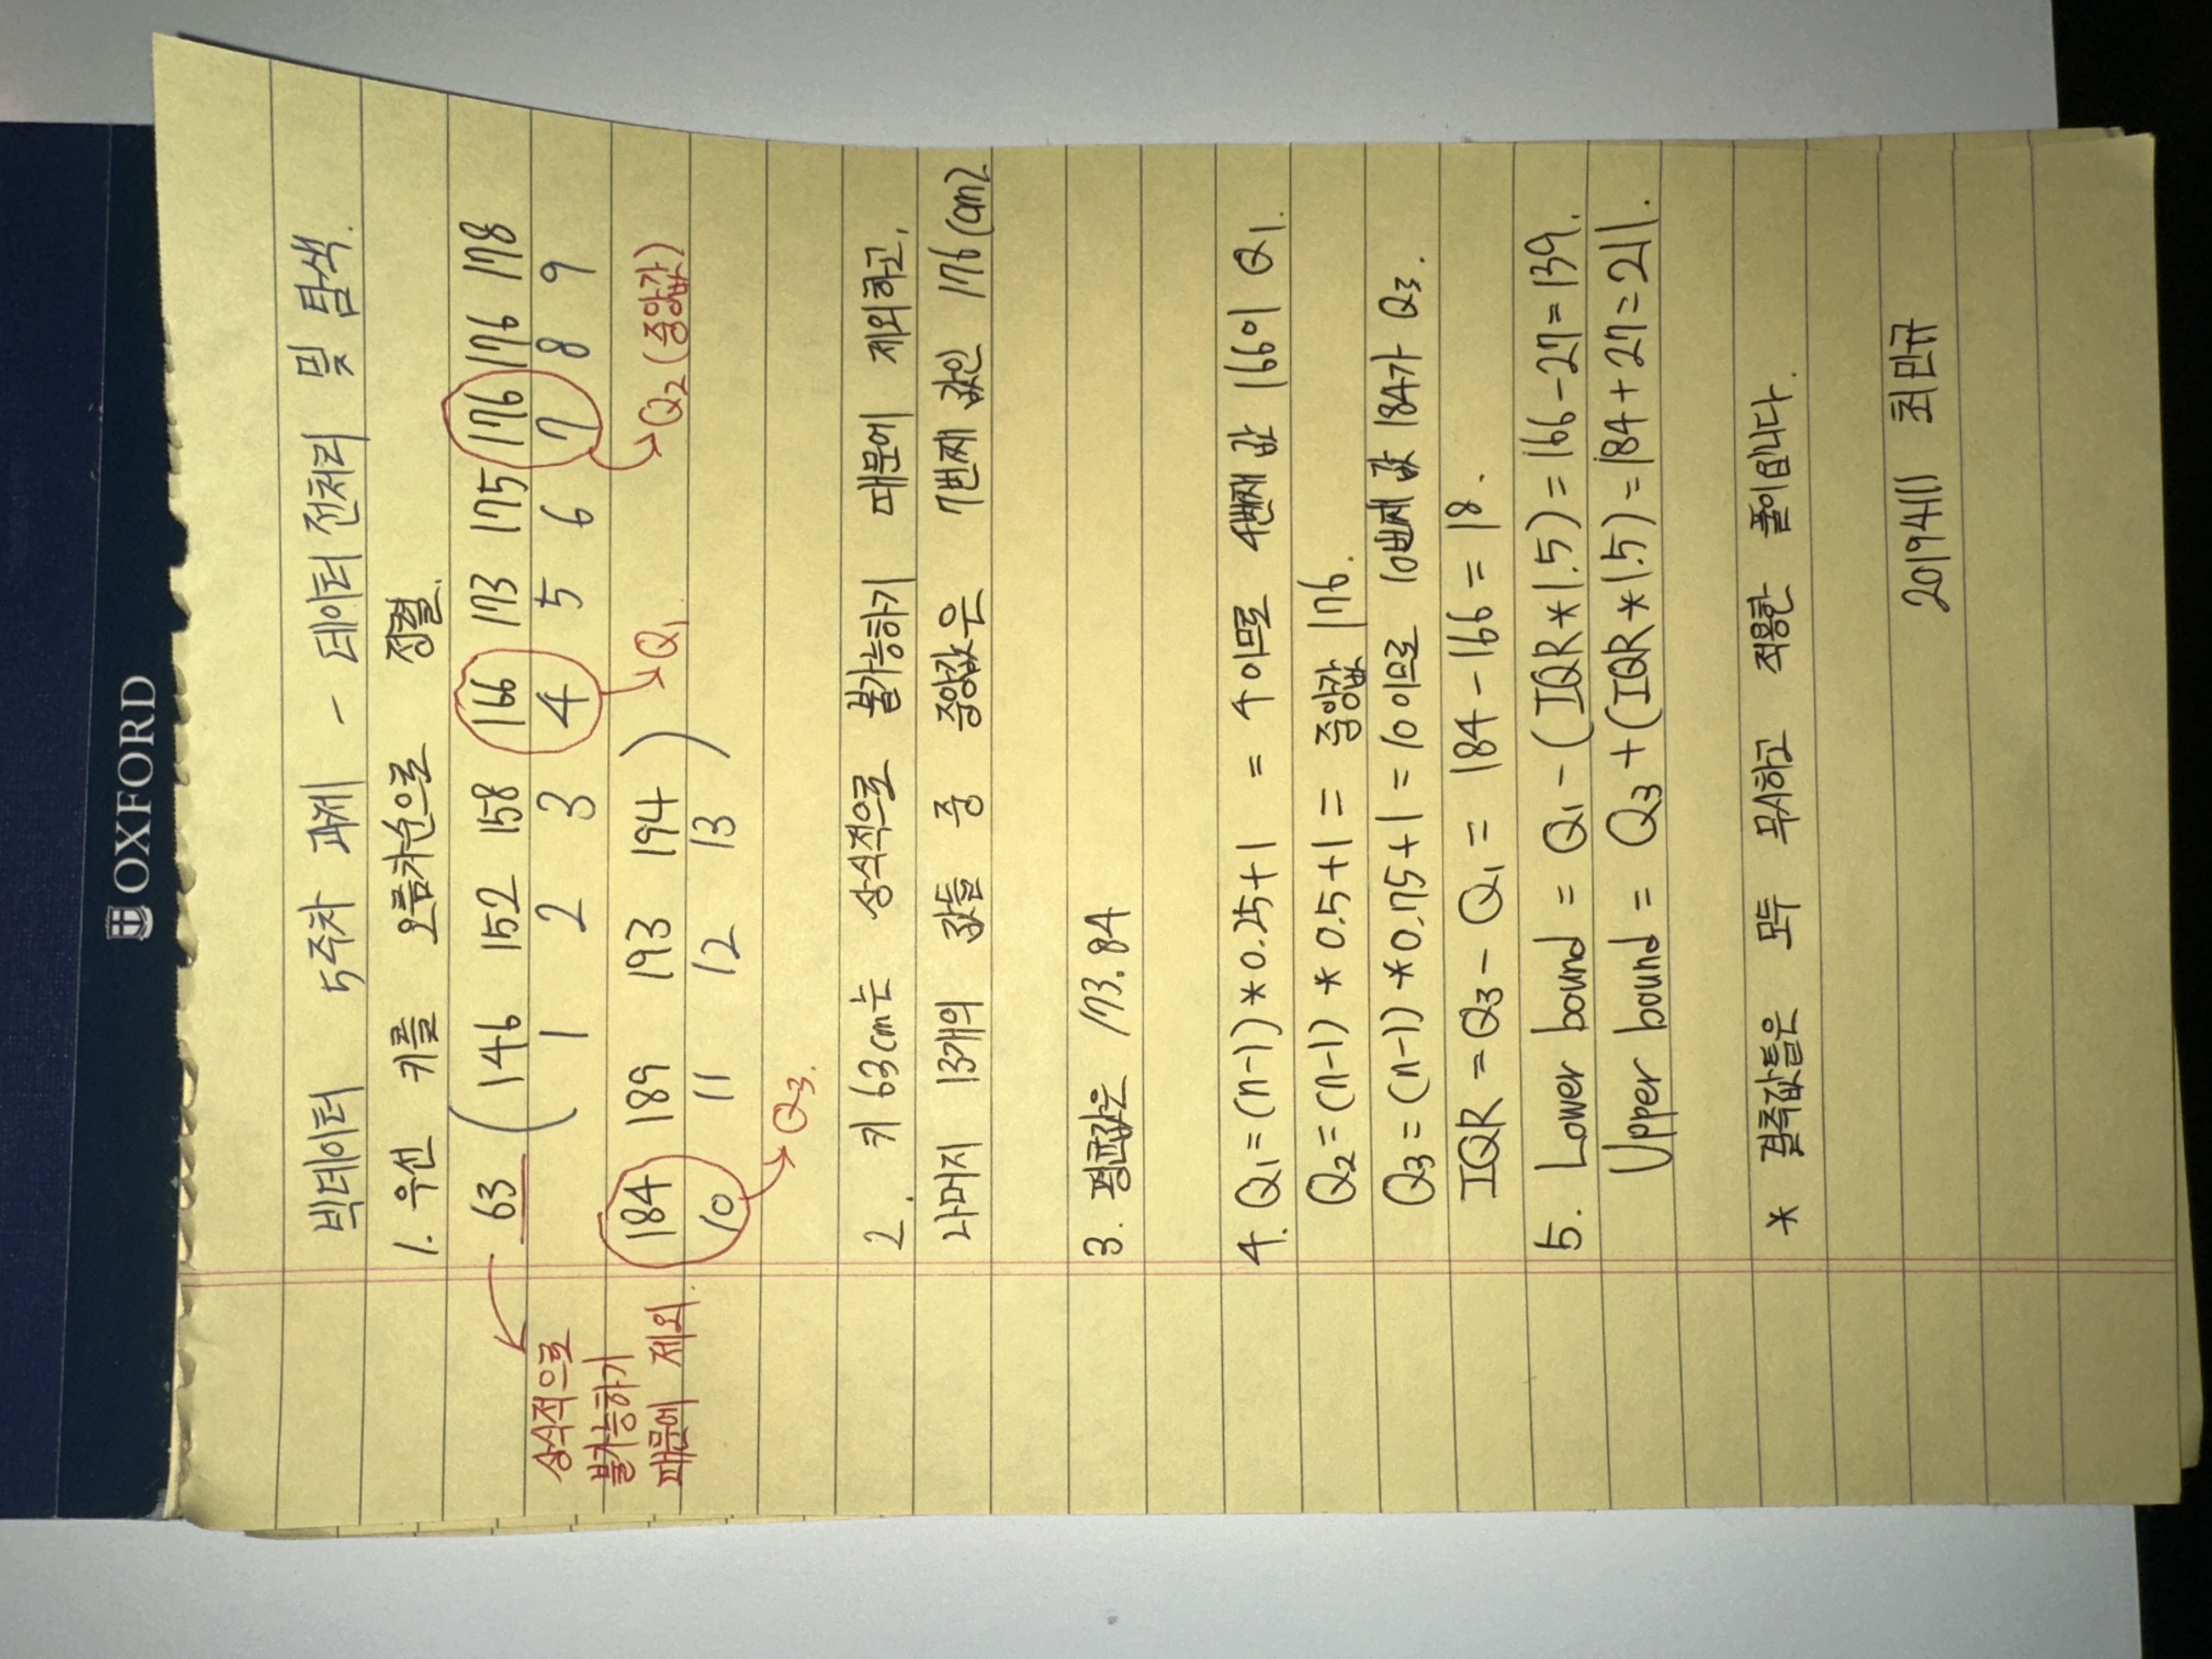 OXFORD
빅데이터 5주차 과제 - 데이터 전처리 및 탐색.
1. 우선 키를 오름차순으로 정렬.
63 ( 146 152 158 166 173 175 176 176 178
1 2 3 4 5 6 7 8 9
상식적으로
불가능하기
때문에 제외.
184 189 193 194 )
10 11 12 13
Q1.
Q2 (중앙값)
Q3.
2. 키 63cm는 상식적으로 불가능하기 때문에 제외하고,
나머지 13개의 값들 중 중앙값은 7번째 값인 176(cm)
3. 평균값은 173.84
4. Q1 = (n-1) * 0.25+1 = 4 이므로 4번째 값 166이 Q1.
Q2 = (n-1) * 0.5+1 = 중앙값 176.
Q3 = (n-1) * 0.75+1 = 10 이므로 10번째 값 184가 Q3.
IQR = Q3 - Q1 = 184 - 166 = 18.
5. Lower bound = Q1 - (IQR * 1.5) = 166 - 27 = 139.
Upper bound = Q3 + (IQR * 1.5) = 184 + 27 = 211.
* 결측값들은 모두 무시하고 적용한 풀이입니다.
20194111 최민규